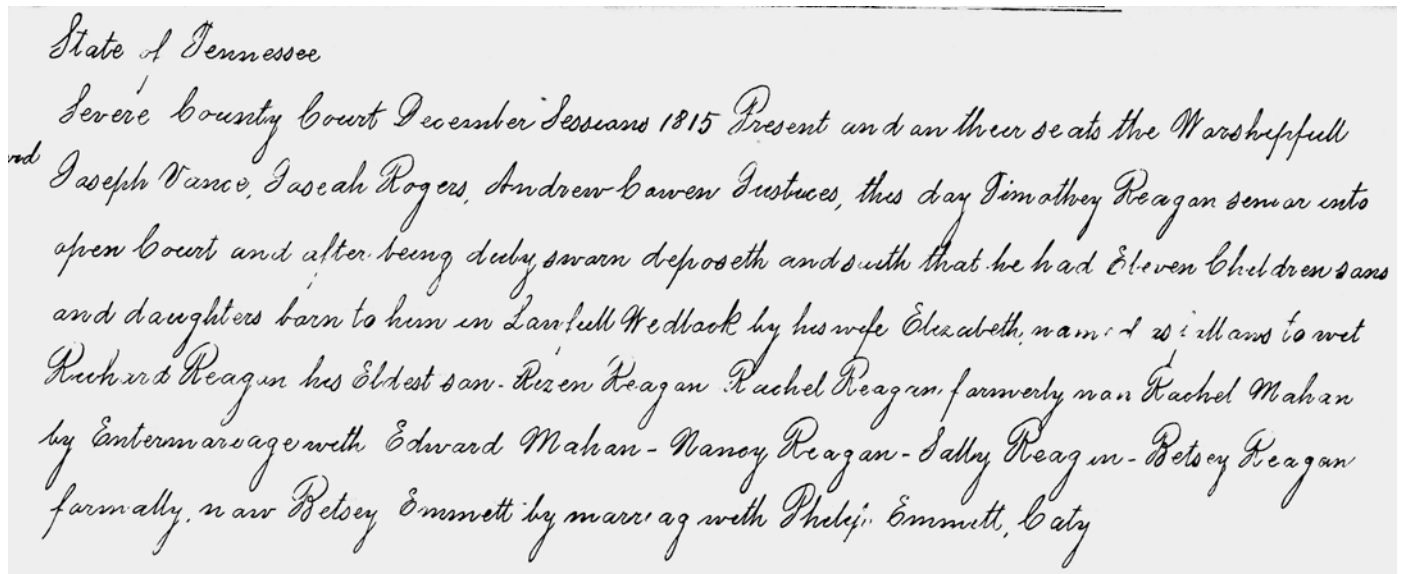 State of Tennessee
Severe County Court December Sessions 1815 Present and on their seats the Worshipfull
Joseph Vance, Joseah Rogers, Andrew Cowen Justices, this day Timothey Reagan senior into
open Court and after being duly sworn deposeth and saith that he had Eleven Children sons
and daughters born to him in Lawfull Wedlock by his wife Elizabeth, named as follows to wit
Richard Reagan his Eldest son - Rezen Reagan Rachel Reagan formerly now Rachel Mahan
by Entermareage with Edward Mahan - Nancy Reagan - Sally Reagin - Betsey Reagan
formally, now Betsey Emmett by marriag with Phelip Emmett, Caty